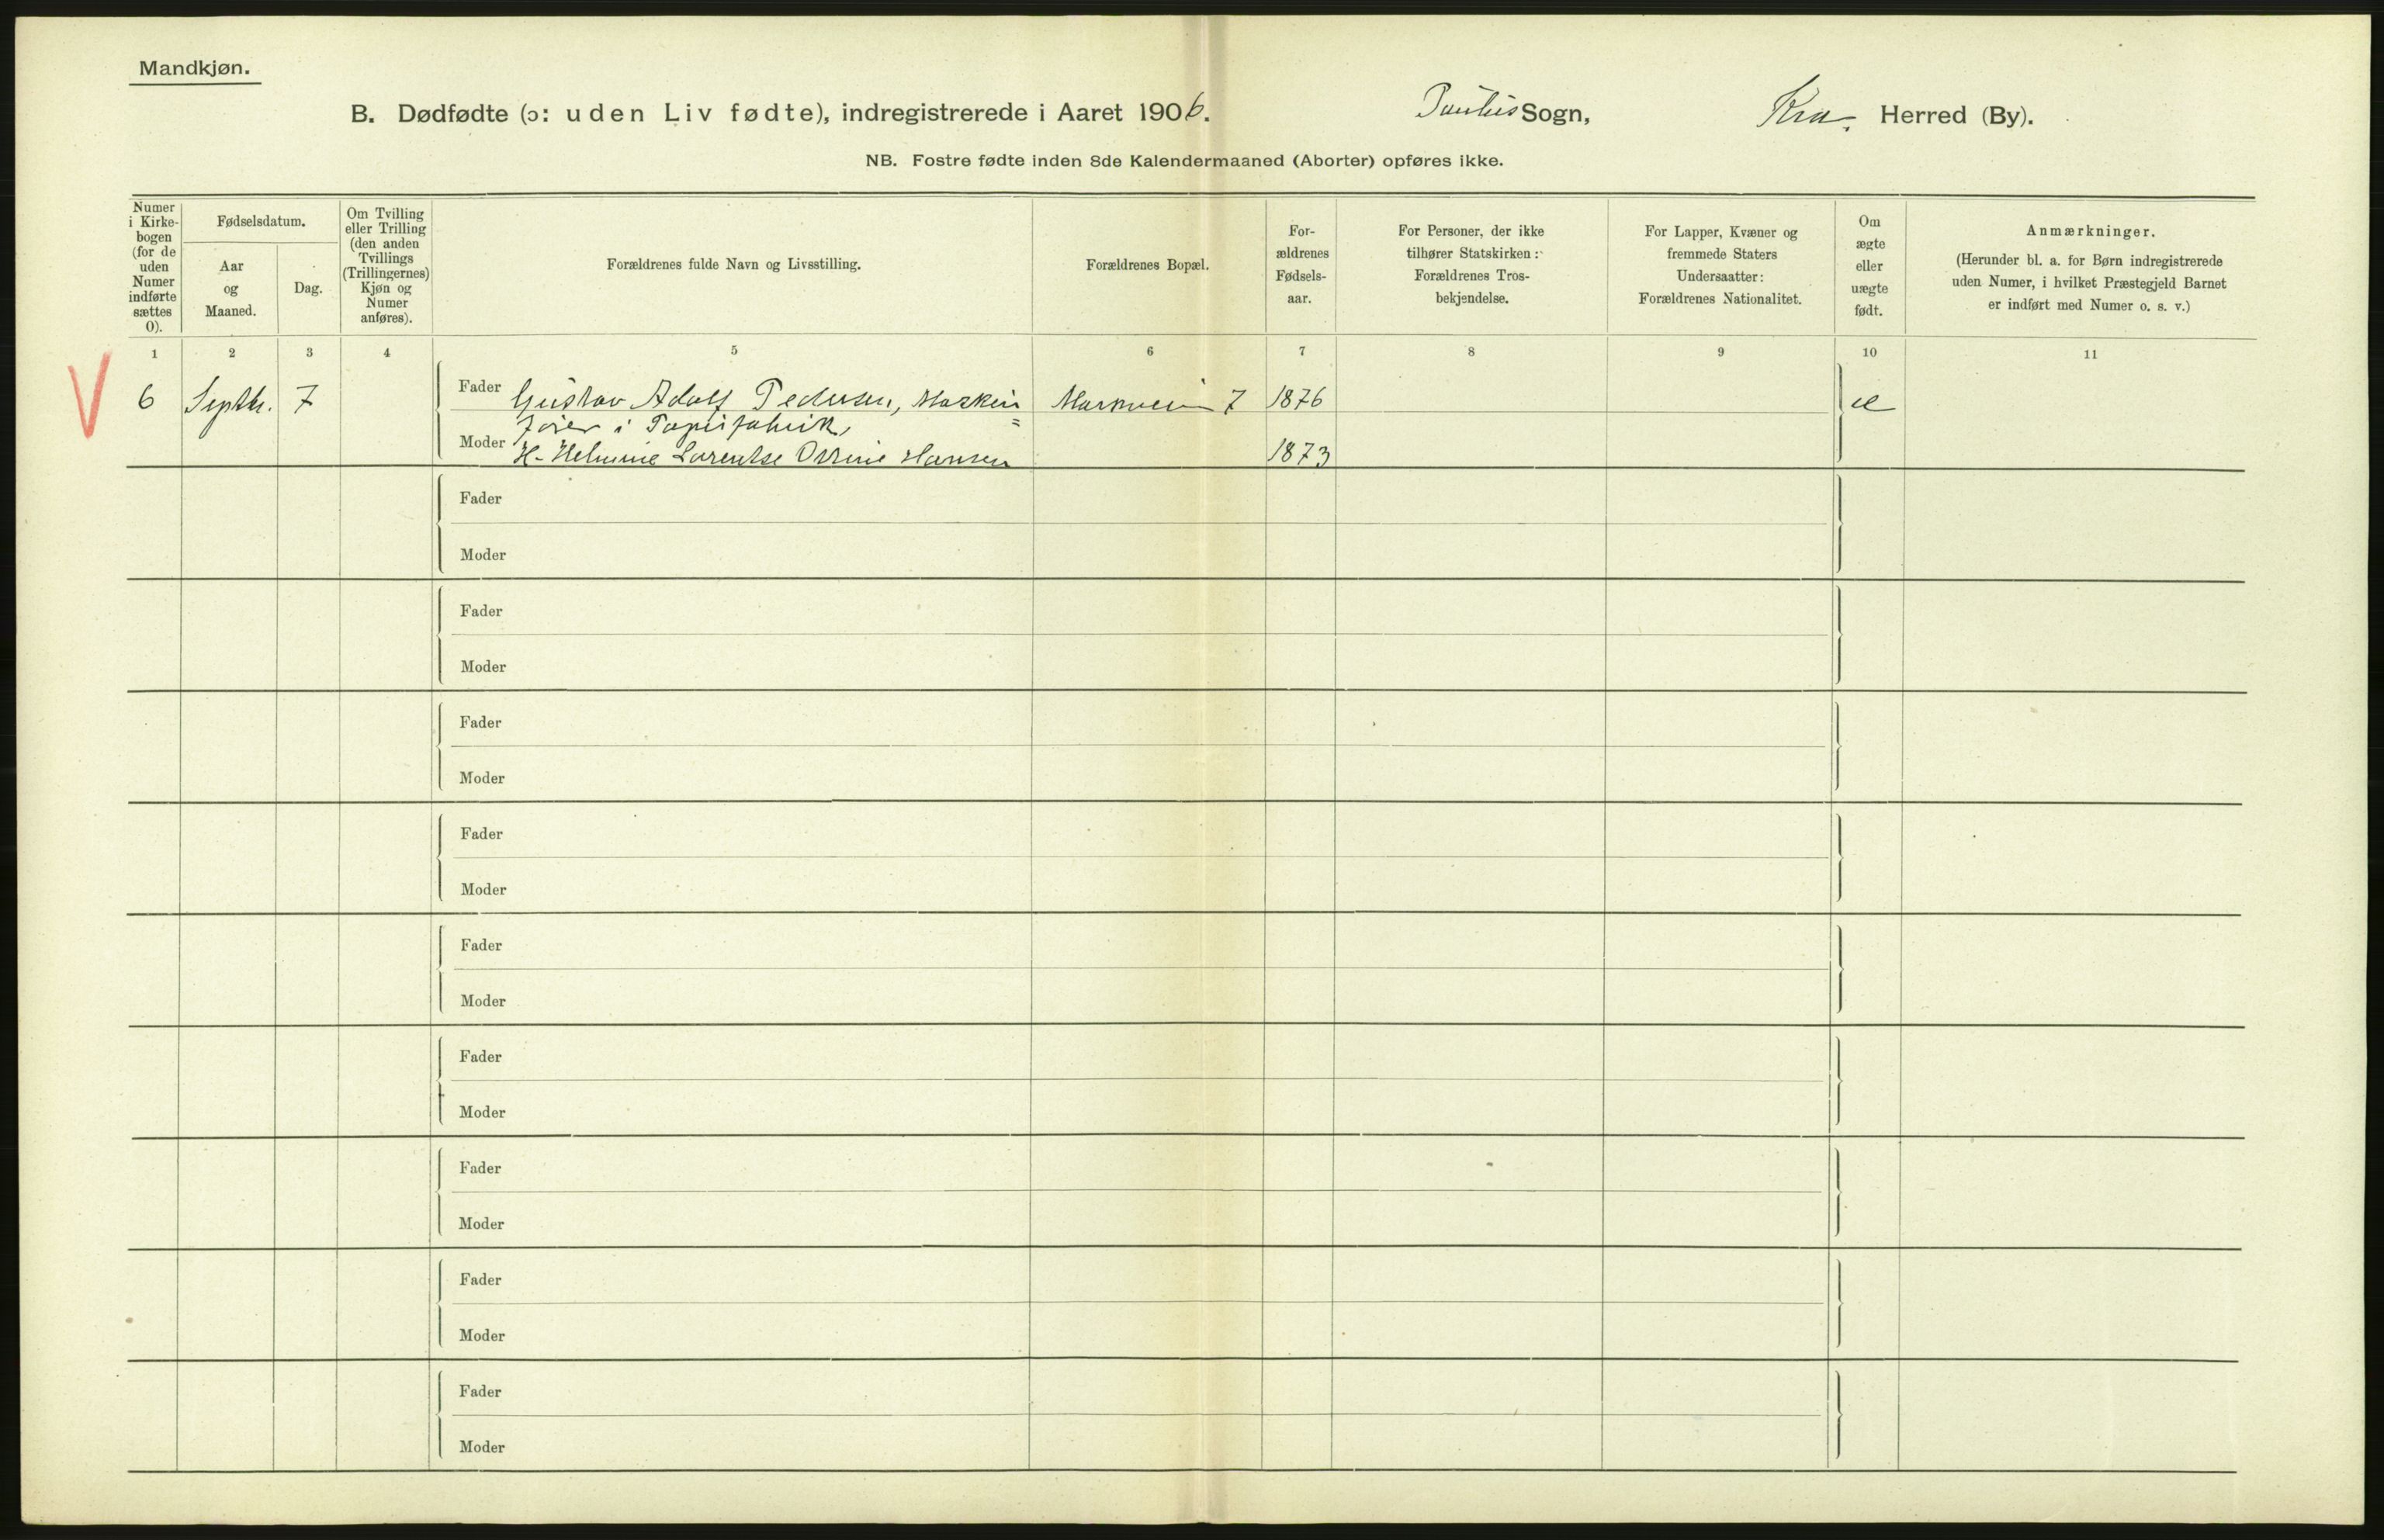 Mandkjøn.
B. Dødfødte (ɔ: uden Liv fødte), indregistrerede i Aaret 1906. Paulus Sogn, Kra. Herred (By).
NB. Fostre fødte inden 8de Kalendermaaned (Aborter) opføres ikke.
Numer
i Kirke-
bogen
(for de
uden
Numer
indførte
sættes
0).
Fødselsdatum.
Aar
og
Maaned.
Dag.
Om Tvilling
eller Trilling
(den anden
Tvillings
(Trillingernes)
Kjøn og
Numer
anføres).
Forældrenes fulde Navn og Livsstilling.
Forældrenes Bopæl.
For-
ældrenes
Fødsels-
aar.
For Personer, der ikke
tilhører Statskirken:
Forældrenes Tros-
bekjendelse.
For Lapper, Kvæner og
fremmede Staters
Undersaatter:
Forældrenes Nationalitet.
Om
ægte
eller
uægte
født.
Anmærkninger.
(Herunder bl. a. for Børn indregistrerede
uden Numer, i hvilket Præstegjeld Barnet
er indført med Numer o. s. v.)
1 2 3 4 5 6 7 8 9 10 11
V 6 Septbr. 7 Fader Gustav Adolf Pedersen, Maskin Markveien 7 1876 æ
fører i Papirfabrik,
Moder H. Helmine Lorentse Hansen 1873
Fader
Moder
Fader
Moder
Fader
Moder
Fader
Moder
Fader
Moder
Fader
Moder
Fader
Moder
Fader
Moder
Fader
Moder